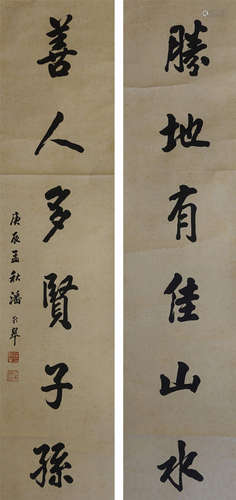 勝地有佳山水
善人多賢子孫
庚辰孟秋潘齡皋